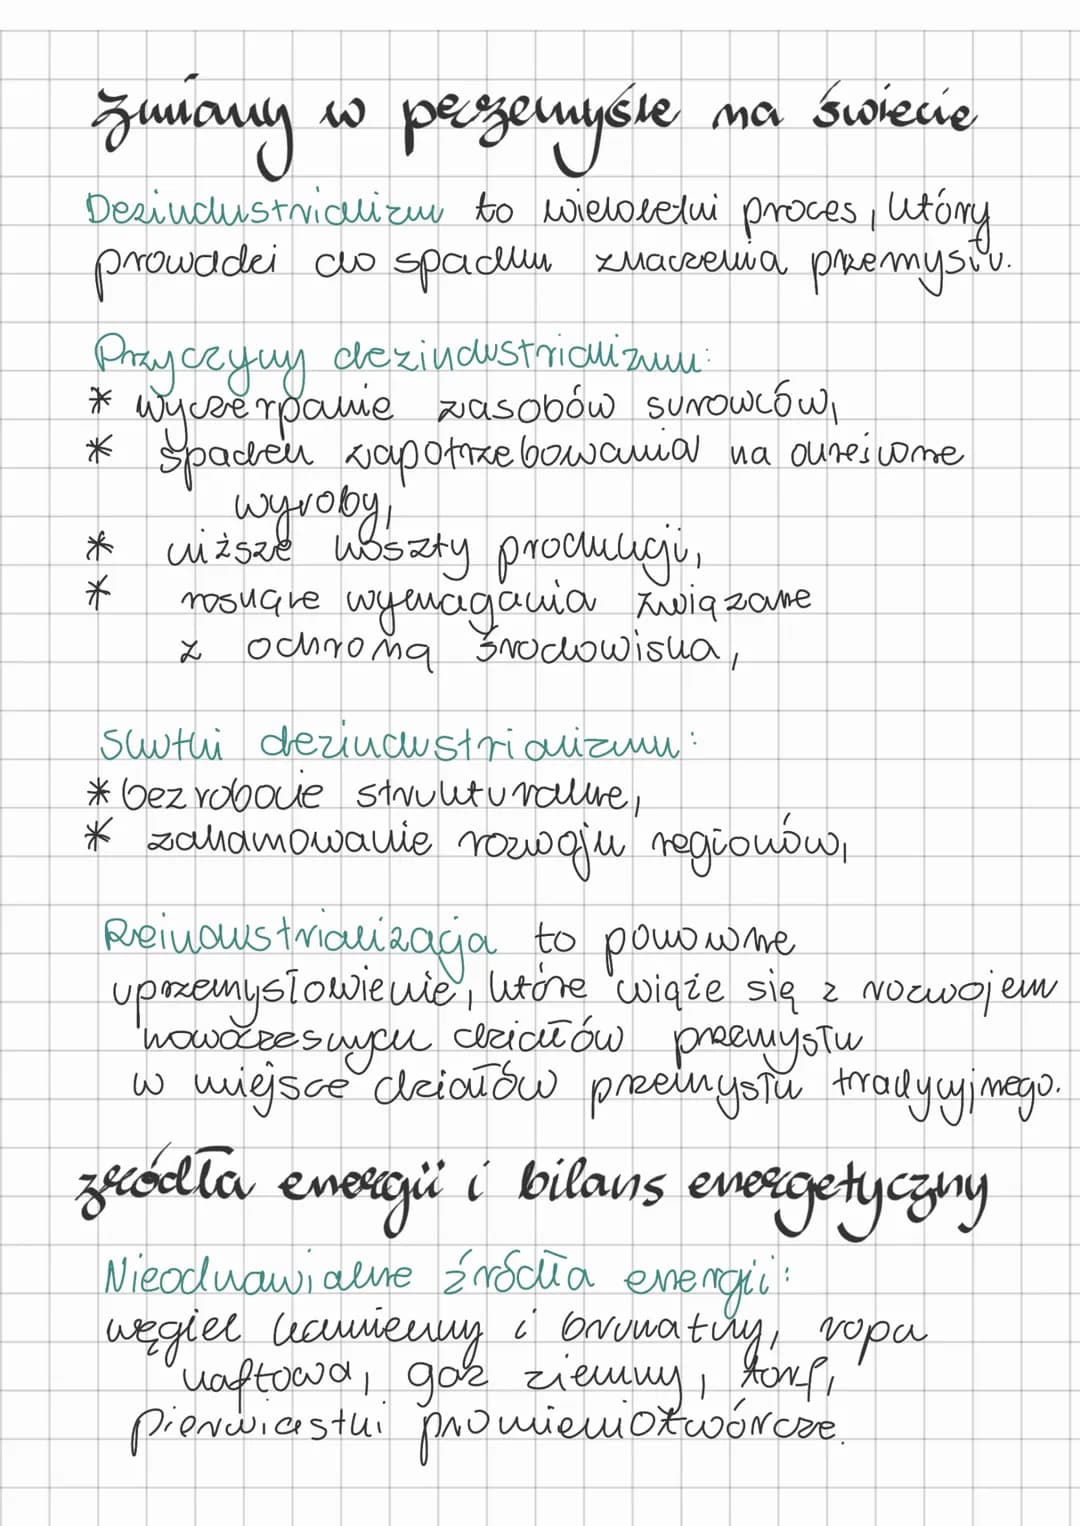 Zmiany w przemyśle na świecie
Dezindustrializm to wieloletni proces, który
prowadzi do spadku znaczenia przemysłu.
Przyczyny dezindustrializmu:
* wyczerpanie zasobów surowców,
* spadek zapotrzebowania na określone
wyroby,
* niższe koszty produkcji,
* rosnące wymagania związane
z ochroną środowiska,
Skutki dezindustrializmu:
* bezrobocie strukturalne,
* zahamowanie rozwoju regionów,
Reindustrializacja to ponowne
uprzemysłowienie, które wiąże się z rozwojem
nowoczesnych działów przemysłu
w miejsce działów przemysłu tradycyjnego.
źródła energii i bilans energetyczny
Nieodnawialne źródła energii:
węgiel kamienny i brunatny, ropa
naftowa, gaz ziemny, torf,
pierwiastki promieniotwórcze.